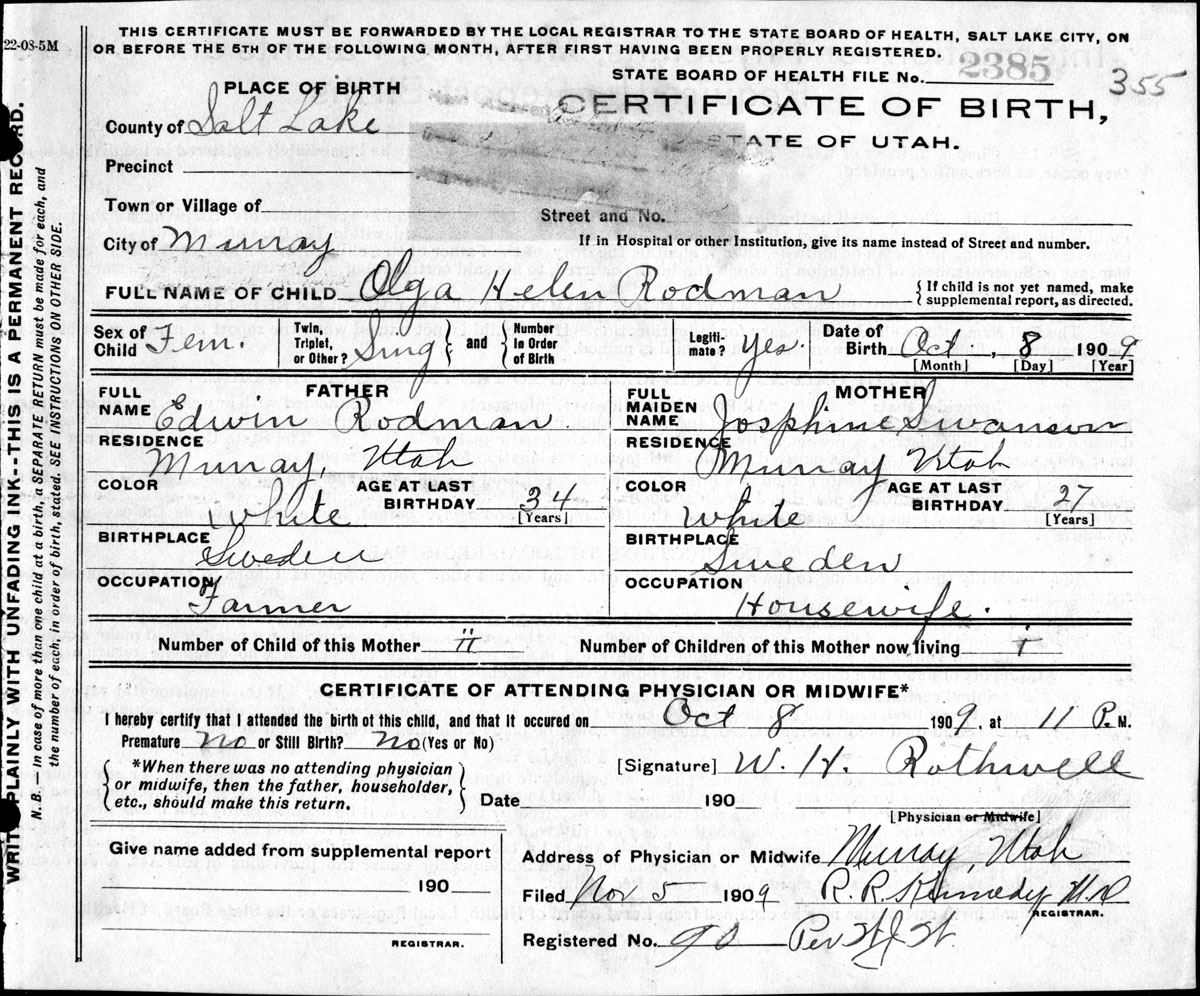 22-08-5M
THIS CERTIFICATE MUST BE FORWARDED BY THE LOCAL REGISTRAR TO THE STATE BOARD OF HEALTH, SALT LAKE CITY, ON
OR BEFORE THE 5TH OF THE FOLLOWING MONTH, AFTER FIRST HAVING BEEN PROPERLY REGISTERED.
STATE BOARD OF HEALTH FILE No. 2385 355
PLACE OF BIRTH
CERTIFICATE OF BIRTH,
County of Salt Lake
STATE OF UTAH.
Precinct
Town or Village of
Street and No.
City of Murray
If in Hospital or other Institution, give its name instead of Street and number.
FULL NAME OF CHILD Olga Helen Rodman { If child is not yet named, make supplemental report, as directed.
Sex of Child Fem. Twin, Triplet, or Other? Sing } and { Number In Order of Birth Legiti-mate? Yes. Date of Birth Oct, 8 1909
[Month] [Day] [Year]
FATHER
FULL NAME Edwin Rodman
RESIDENCE
Murray, Utah
COLOR White AGE AT LAST BIRTHDAY 34 [Years]
BIRTHPLACE
Sweden
OCCUPATION
Farmer
MOTHER
FULL MAIDEN NAME Josphine Swanson
RESIDENCE
Murray Utah
COLOR White AGE AT LAST BIRTHDAY 27 [Years]
BIRTHPLACE
Sweden
OCCUPATION
Housewife.
Number of Child of this Mother ii Number of Children of this Mother now living i
CERTIFICATE OF ATTENDING PHYSICIAN OR MIDWIFE*
I hereby certify that I attended the birth of this child, and that it occured on Oct 8 1909, at 11 P. M.
Premature No or Still Birth? No (Yes or No)
{ *When there was no attending physician or midwife, then the father, householder, etc., should make this return. }
[Signature] W. H. Rothwell
Date 190
[Physician or Midwife]
Give name added from supplemental report
190
REGISTRAR.
Address of Physician or Midwife Murray, Utah
Filed Nov 5 1909 R. R. Kennedy M.D
REGISTRAR.
Registered No. 90 Per
WRITE PLAINLY WITH UNFADING INK--THIS IS A PERMANENT RECORD.
N. B. — in case of more than one child at a birth, a SEPARATE RETURN must be made for each, and
the number of each, in order of birth, stated. SEE INSTRUCTIONS ON OTHER SIDE.